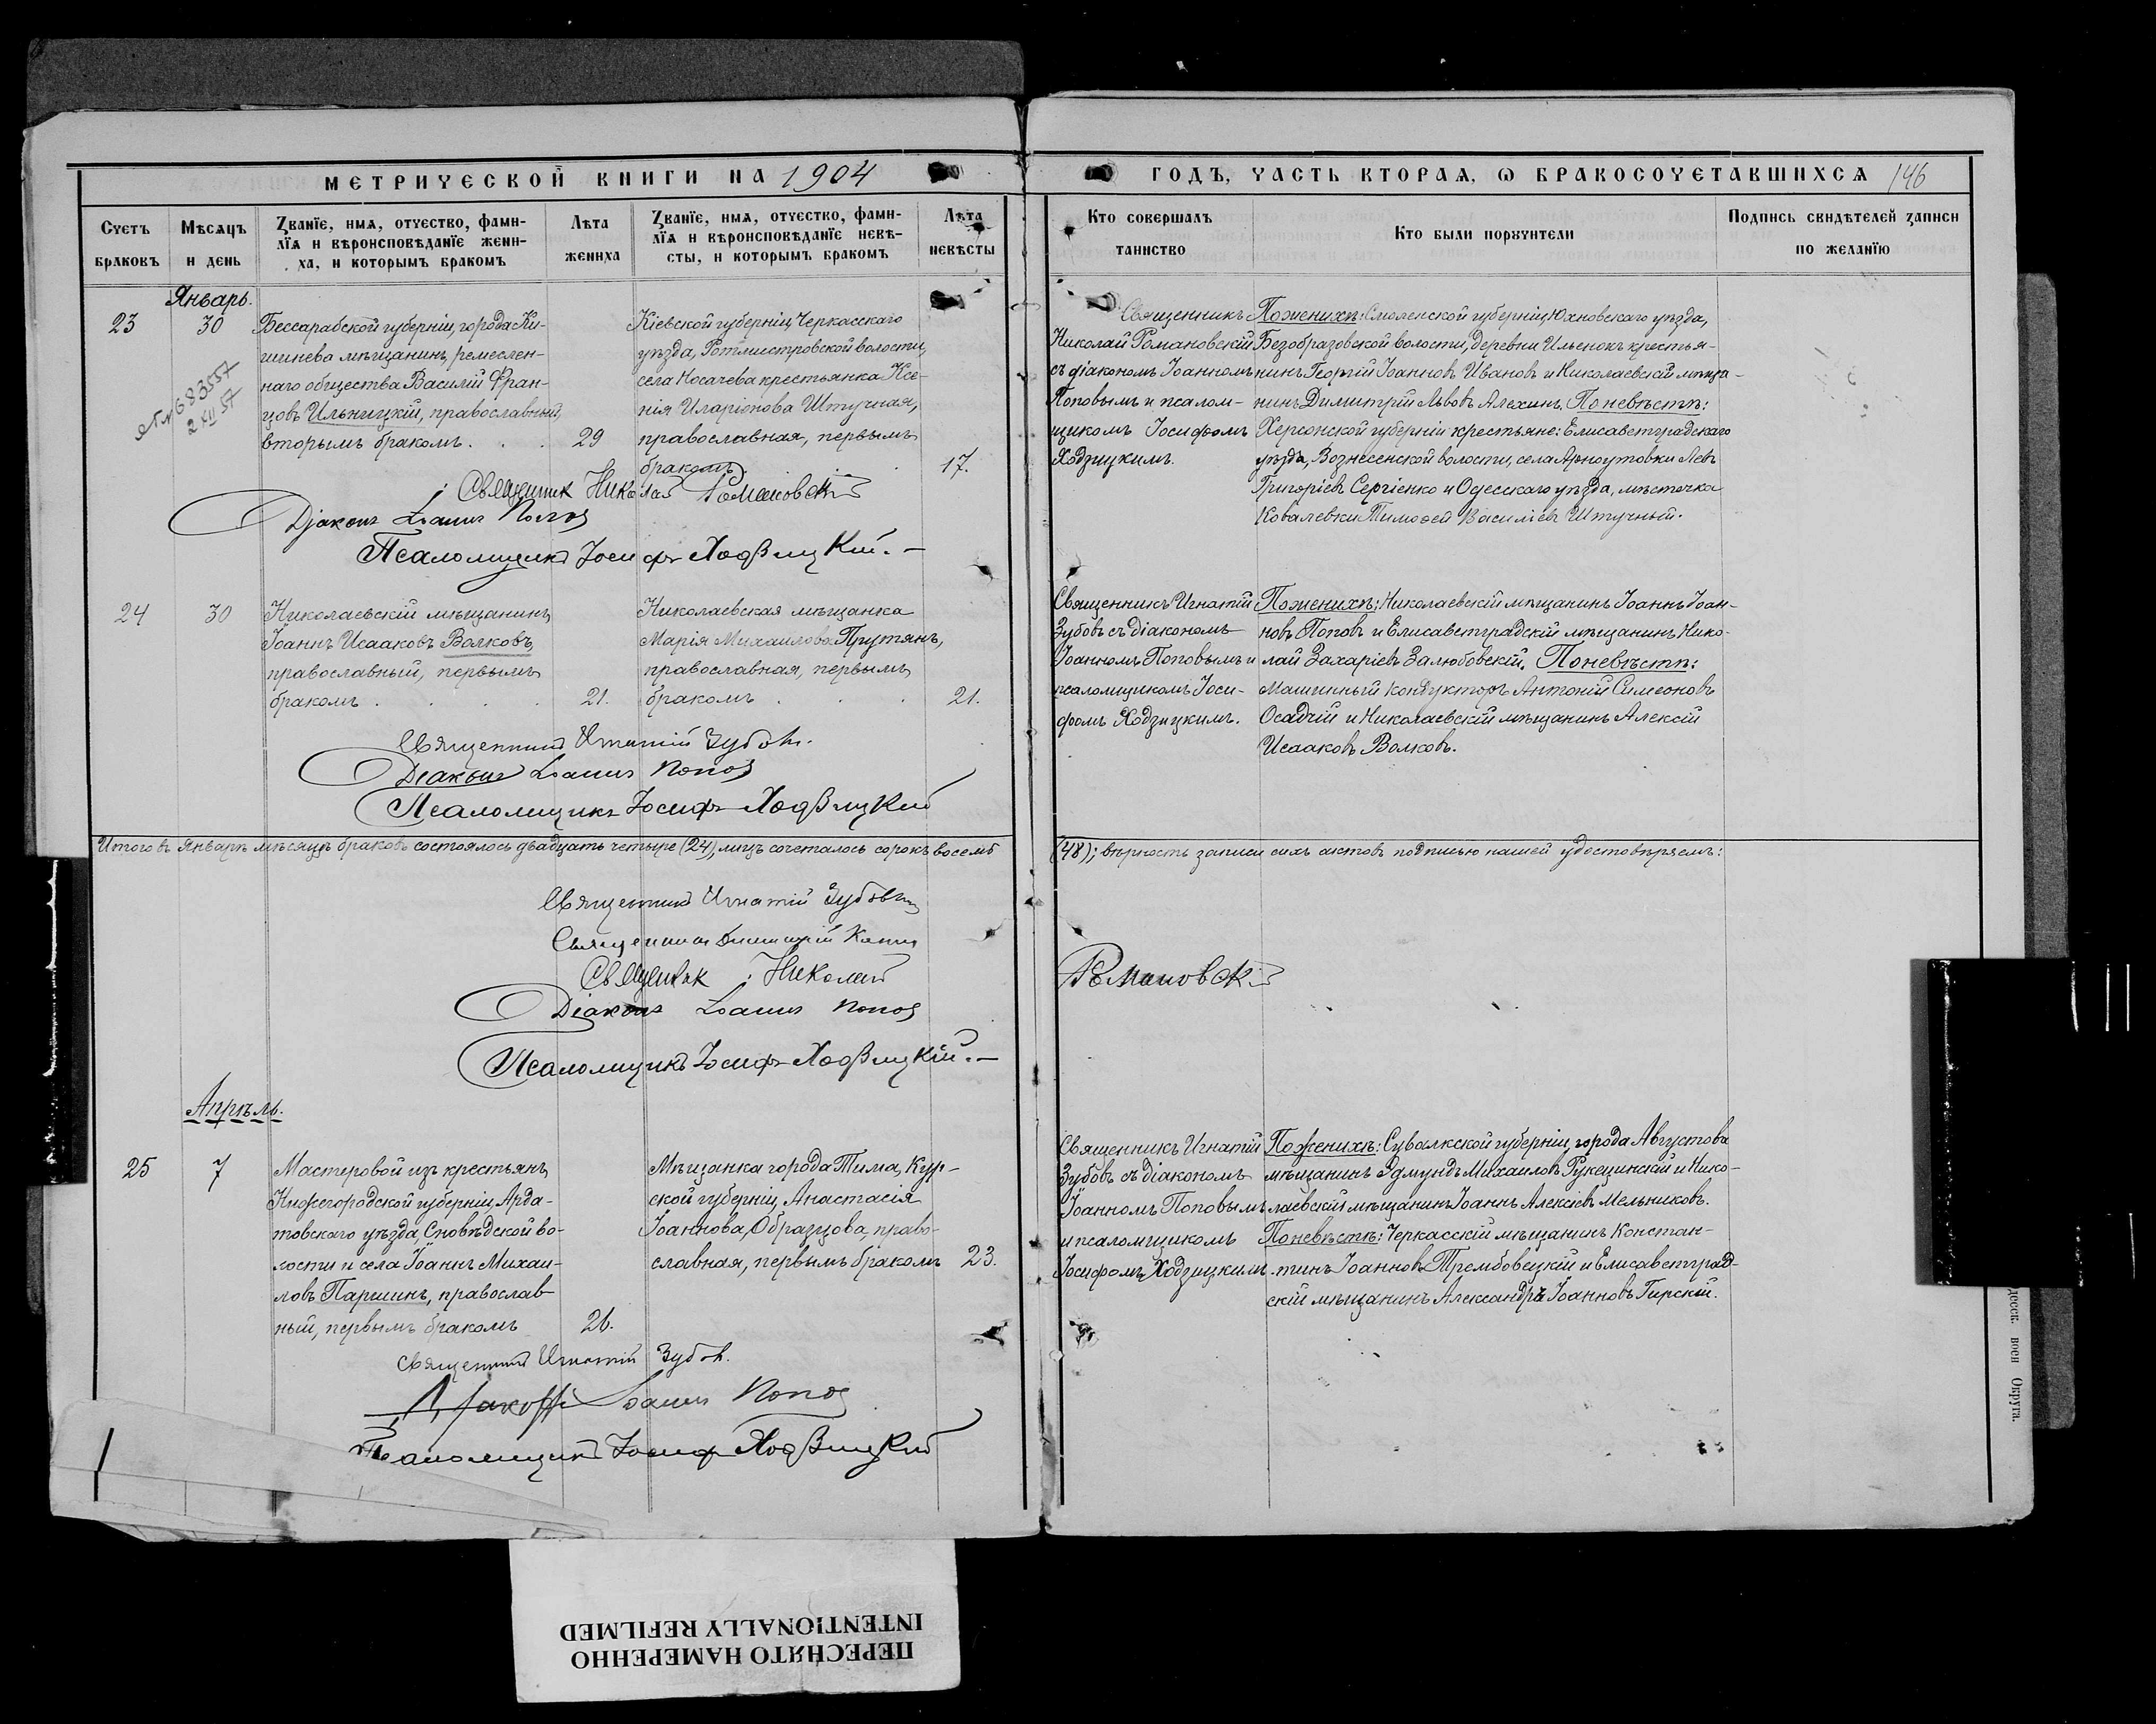 МЕТРИЧЕСКОЙ КНИГИ НА 1904
ГОДЪ, ЧАСТЬ ВТОРАѦ, Ѡ БРАКОСОЧЕТАВШИХСѦ 146
Счетъ браковъ
Мѣсѧцъ и день
Званїе, имѧ, отчество, фами-
лїѧ и вѣроисповѣданїе жени-
ха, и которымъ бракомъ
Лѣта жениха
Званїе, имѧ, отчество, фами-
лїѧ и вѣроисповѣданїе невѣ-
сты, и которымъ бракомъ
Лѣта невѣсты
Кто совершалъ таинство
Кто были порꙋчители
Подпись свидѣтелей записи по желанїю
Январь.
23
30
Бессарабской губерніи, города Ки-
шинева мѣщанинъ, ремеслен-
наго общества Василій Фран-
цовъ Ильницкій, православный,
вторымъ бракомъ . . .
29
Кіевской губерніи, Черкасскаго
уѣзда, Ротмистровской волости,
села Носачева крестьянка Ксе-
нія Иларіонова Штучная,
православная, первымъ
бракомъ .
17.
Священникъ
Николай Романовскій
съ діакономъ Іоанномъ
Поповымъ и псалом-
щикомъ Іосифомъ
Ходзицкимъ.
По женихѣ: Смоленской губерніи, Юхновскаго уѣзда,
Безобразовской волости, деревни Ильенокъ крестья-
нинъ Георгій Іоанновъ Ивановъ и Николаевскій мѣща-
нинъ Димитрій Львовъ Алехинъ. По невѣстѣ:
Херсонской губерніи крестьяне: Елисаветградскаго
уѣзда, Вознесенской волости, села Арноутовки Левъ
Григоріевъ Сергіенко и Одесскаго уѣзда, мѣстечка
Ковалевки Тимоѳей Василіевъ Штучный.
683557
2 XII 57
Священник Николай Романовскій
Діаконъ Іоаннъ Попов
Псаломщикъ Іосифъ Ходзицкій. —
24
30
Николаевскій мѣщанинъ
Іоаннъ Исааковъ Волковъ,
православный, первымъ
бракомъ . . . .
21.
Николаевская мѣщанка
Марія Михаилова Прутянъ,
православная, первымъ
бракомъ . . .
21.
Священникъ Игнатій
Зубовъ съ діакономъ
Іоанномъ Поповымъ и
псаломщикомъ Іоси-
фомъ Ходзицкимъ.
По женихѣ: Николаевскій мѣщанинъ Іоаннъ Іоан-
новъ Поповъ и Елисаветградскій мѣщанинъ Нико-
лай Захаріевъ Залюбовскій. По невѣстѣ:
Машинный кондукторъ Антоній Симеоновъ
Осадчій и Николаевскій мѣщанинъ Алексій
Исааковъ Волковъ.
Священникъ Игнатій Зубовъ.
Діаконъ Іоаннъ Попов
Псаломщикъ Іосифъ Ходзицкій
Итого въ Январѣ мѣсяцѣ браковъ состоялось двадцать четыре (24), лицъ сочеталось сорокъ восемь (48); вѣрность записи сихъ актовъ подписью нашей удостовѣряемъ:
Священникъ Игнатій Зубовъ
Священникъ Димитрій
Священик Николай Романовскій
Діаконъ Іоаннъ Попов
Псаломщикъ Іосифъ Ходзицкій. —
Апрѣль.
25
7
Мастеровой изъ крестьянъ
Нижегородской губерніи, Арда-
товскаго уѣзда, Сновѣдской во-
лости и села Іоаннъ Михаи-
ловъ Паршинъ, православ-
ный, первымъ бракомъ
26.
Мѣщанка города Тима, Кур-
ской губерніи, Анастасія
Іоаннова, Образцова, право-
славная, первымъ бракомъ
23.
Священникъ Игнатій
Зубовъ съ діакономъ
Іоанномъ Поповымъ
и псаломщикомъ
Іосифомъ Ходзицкимъ.
По женихѣ: Сувалкской губерніи, города Августова
мѣщанинъ Эдмундъ Михаиловъ Рукецинскій и Нико-
лаевскій мѣщанинъ Іоаннъ Алексіевъ Мельниковъ.
По невѣстѣ: Черкасскій мѣщанинъ Констан-
тинъ Іоанновъ Трембовецкій и Елисаветград-
скій мѣщанинъ Александръ Іоанновъ Гирскій.
Священникъ Игнатій Зубов.
Діаконъ Іоаннъ Попов
Псаломщикъ Іосифъ Ходзицкій
десск. воен Округа.
ПЕРЕСНЯТО НАМЕРЕННО
INTENTIONALLY REFILMED